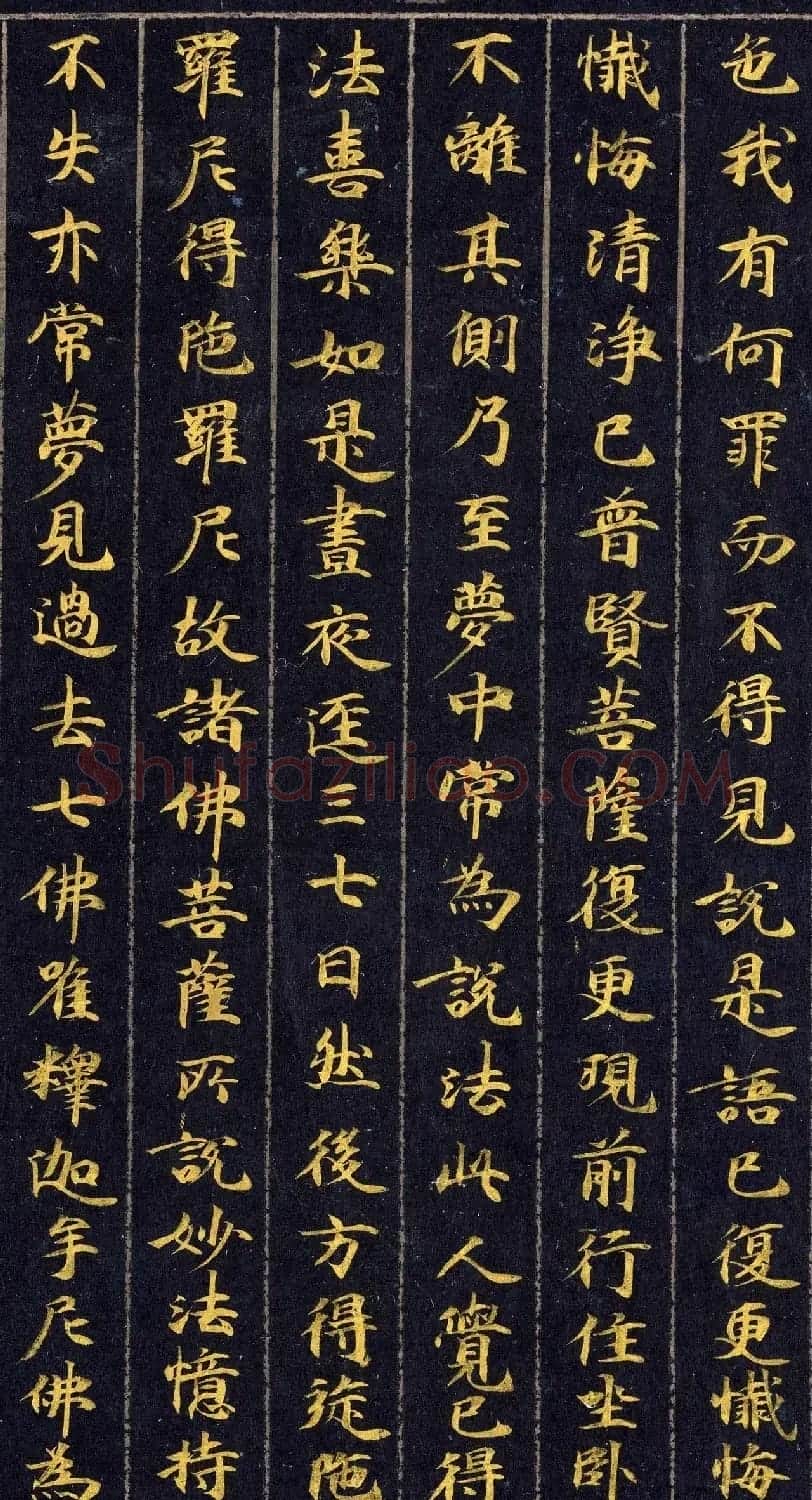 色我有何罪而不得見說是語已復更懺悔
懺悔清淨已普賢菩薩復更現前行住坐臥
不離其側乃至夢中常為說法此人覺已得
法喜樂如是晝夜逕三七日然後方得旋陁
羅尼得陁羅尼故諸佛菩薩所說妙法憶持
不失亦常夢見過去七佛唯釋迦牟尼佛為
Shufaziliao.COM